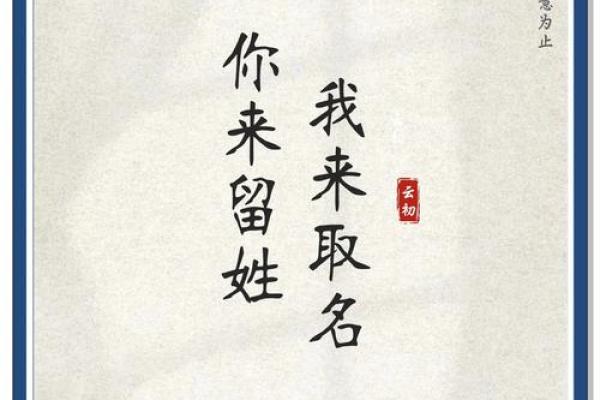 你来留姓
我来取名
云初
意为止